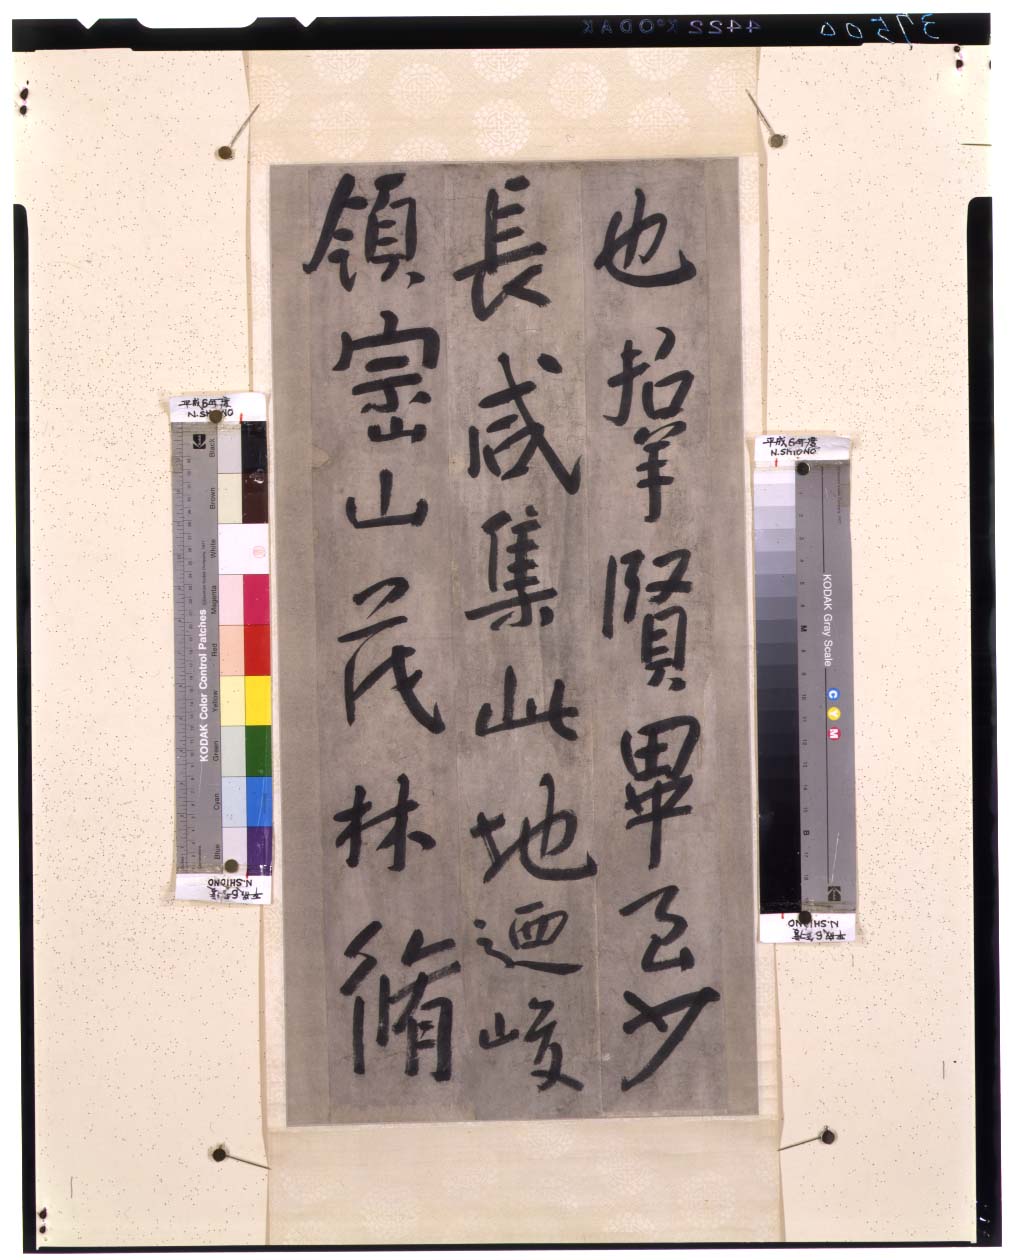 37500
4422 KODAK
也羣賢畢至少
長咸集此地迺峻
領崇山茂林脩
平成6年度
N.SHIONO
KODAK Color Control Patches
Black
Brown
White
Magenta
Red
Yellow
Green
Cyan
Blue
N.SHIONO
平成6年度
平成6年度
N.SHIONO
KODAK Gray Scale
C Y M
M
B
N.SHIONO
平成6年度